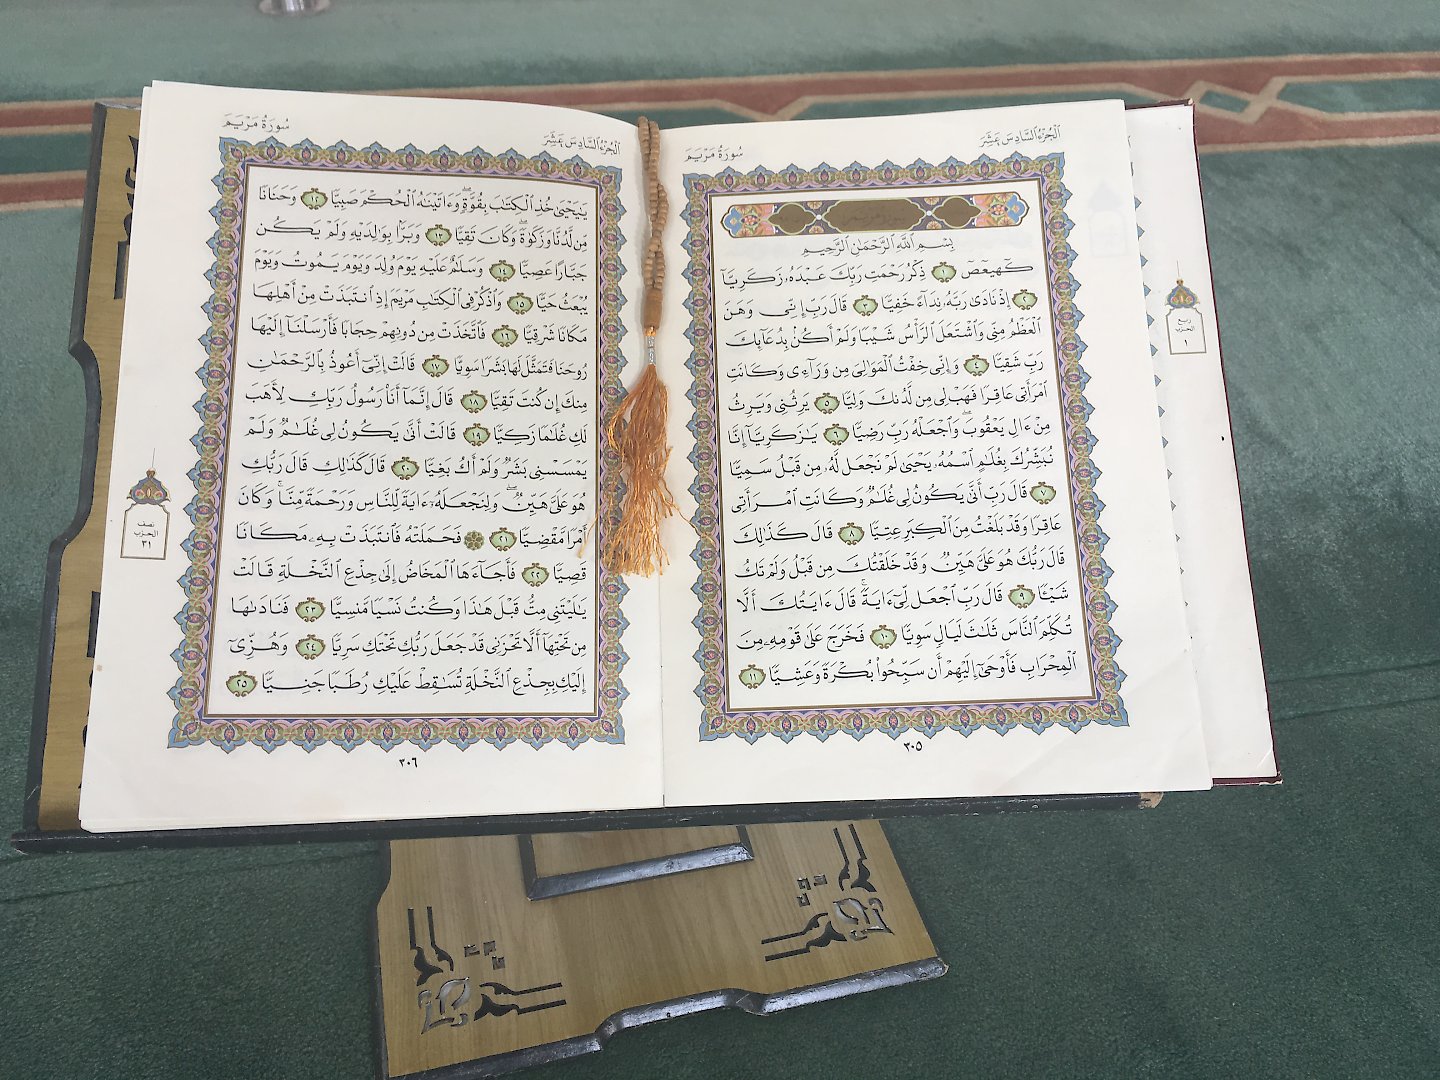 ٱلْجُزْءُ ٱلسَّادِسَ عَشَرَ
سُورَةُ مَرْيَمَ
بِسْمِ ٱللَّهِ ٱلرَّحْمَٰنِ ٱلرَّحِيمِ
كٓهيعٓصٓ ١ ذِكْرُ رَحْمَتِ رَبِّكَ عَبْدَهُۥ زَكَرِيَّآ
٢ إِذْ نَادَىٰ رَبَّهُۥ نِدَآءً خَفِيًّا ٣ قَالَ رَبِّ إِنِّى وَهَنَ
ٱلْعَظْمُ مِنِّى وَٱشْتَعَلَ ٱلرَّأْسُ شَيْبًا وَلَمْ أَكُنۢ بِدُعَآئِكَ
رَبِّ شَقِيًّا ٤ وَإِنِّى خِفْتُ ٱلْمَوَٰلِىَ مِن وَرَآءِى وَكَانَتِ
ٱمْرَأَتِى عَاقِرًا فَهَبْ لِى مِن لَّدُنكَ وَلِيًّا ٥ يَرِثُنِى وَيَرِثُ
مِنْ ءَالِ يَعْقُوبَ ۖ وَٱجْعَلْهُ رَبِّ رَضِيًّا ٦ يَٰزَكَرِيَّآ إِنَّا
نُبَشِّرُكَ بِغُلَٰمٍ ٱسْمُهُۥ يَحْيَىٰ لَمْ نَجْعَل لَّهُۥ مِن قَبْلُ سَمِيًّا
٧ قَالَ رَبِّ أَنَّىٰ يَكُونُ لِى غُلَٰمٌ وَكَانَتِ ٱمْرَأَتِى
عَاقِرًا وَقَدْ بَلَغْتُ مِنَ ٱلْكِبَرِ عِتِيًّا ٨ قَالَ كَذَٰلِكَ
قَالَ رَبُّكَ هُوَ عَلَىَّ هَيِّنٌ وَقَدْ خَلَقْتُكَ مِن قَبْلُ وَلَمْ تَكُ
شَيْـًٔا ٩ قَالَ رَبِّ ٱجْعَل لِّىٓ ءَايَةً ۚ قَالَ ءَايَتُكَ أَلَّا
تُكَلِّمَ ٱلنَّاسَ ثَلَٰثَ لَيَالٍ سَوِيًّا ١٠ فَخَرَجَ عَلَىٰ قَوْمِهِۦ مِنَ
ٱلْمِحْرَابِ فَأَوْحَىٰٓ إِلَيْهِمْ أَن سَبِّحُوا۟ بُكْرَةً وَعَشِيًّا ١١
٣٠٥
ربع
الحزب
١
ٱلْجُزْءُ ٱلسَّادِسَ عَشَرَ
سُورَةُ مَرْيَمَ
يَٰيَحْيَىٰ خُذِ ٱلْكِتَٰبَ بِقُوَّةٍ ۖ وَءَاتَيْنَٰهُ ٱلْحُكْمَ صَبِيًّا ١٢ وَحَنَانًا
مِّن لَّدُنَّا وَزَكَوٰةً ۖ وَكَانَ تَقِيًّا ١٣ وَبَرًّۢا بِوَٰلِدَيْهِ وَلَمْ يَكُن
جَبَّارًا عَصِيًّا ١٤ وَسَلَٰمٌ عَلَيْهِ يَوْمَ وُلِدَ وَيَوْمَ يَمُوتُ وَيَوْمَ
يُبْعَثُ حَيًّا ١٥ وَٱذْكُرْ فِى ٱلْكِتَٰبِ مَرْيَمَ إِذِ ٱنتَبَذَتْ مِنْ أَهْلِهَا
مَكَانًا شَرْقِيًّا ١٦ فَٱتَّخَذَتْ مِن دُونِهِمْ حِجَابًا فَأَرْسَلْنَآ إِلَيْهَا
رُوحَنَا فَتَمَثَّلَ لَهَا بَشَرًا سَوِيًّا ١٧ قَالَتْ إِنِّىٓ أَعُوذُ بِٱلرَّحْمَٰنِ
مِنكَ إِن كُنتَ تَقِيًّا ١٨ قَالَ إِنَّمَآ أَنَا۠ رَسُولُ رَبِّكِ لِأَهَبَ
لَكِ غُلَٰمًا زَكِيًّا ١٩ قَالَتْ أَنَّىٰ يَكُونُ لِى غُلَٰمٌ وَلَمْ
يَمْسَسْنِى بَشَرٌ وَلَمْ أَكُ بَغِيًّا ٢٠ قَالَ كَذَٰلِكِ قَالَ رَبُّكِ
هُوَ عَلَىَّ هَيِّنٌ ۖ وَلِنَجْعَلَهُۥٓ ءَايَةً لِّلنَّاسِ وَرَحْمَةً مِّنَّا ۚ وَكَانَ
أَمْرًا مَّقْضِيًّا ٢١ ۞ فَحَمَلَتْهُ فَٱنتَبَذَتْ بِهِۦ مَكَانًا
قَصِيًّا ٢٢ فَأَجَآءَهَا ٱلْمَخَاضُ إِلَىٰ جِذْعِ ٱلنَّخْلَةِ قَالَتْ
يَٰلَيْتَنِى مِتُّ قَبْلَ هَٰذَا وَكُنتُ نَسْيًا مَّنسِيًّا ٢٣ فَنَادَىٰهَا
مِن تَحْتِهَآ أَلَّا تَحْزَنِى قَدْ جَعَلَ رَبُّكِ تَحْتَكِ سَرِيًّا ٢٤ وَهُزِّىٓ
إِلَيْكِ بِجِذْعِ ٱلنَّخْلَةِ تُسَٰقِطْ عَلَيْكِ رُطَبًا جَنِيًّا ٢٥
٣٠٦
نصف
الحزب
٣١